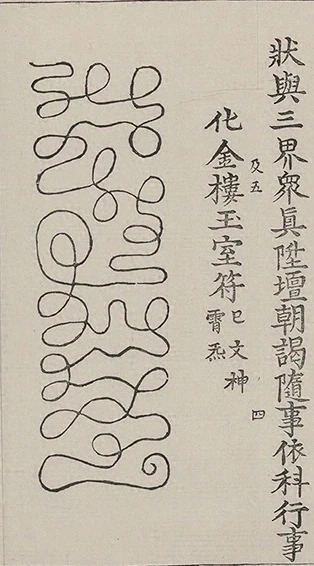 狀與三界衆真陞壇朝謁隨事依科行事
及五 四
化金樓玉室符
巳文神
霄炁